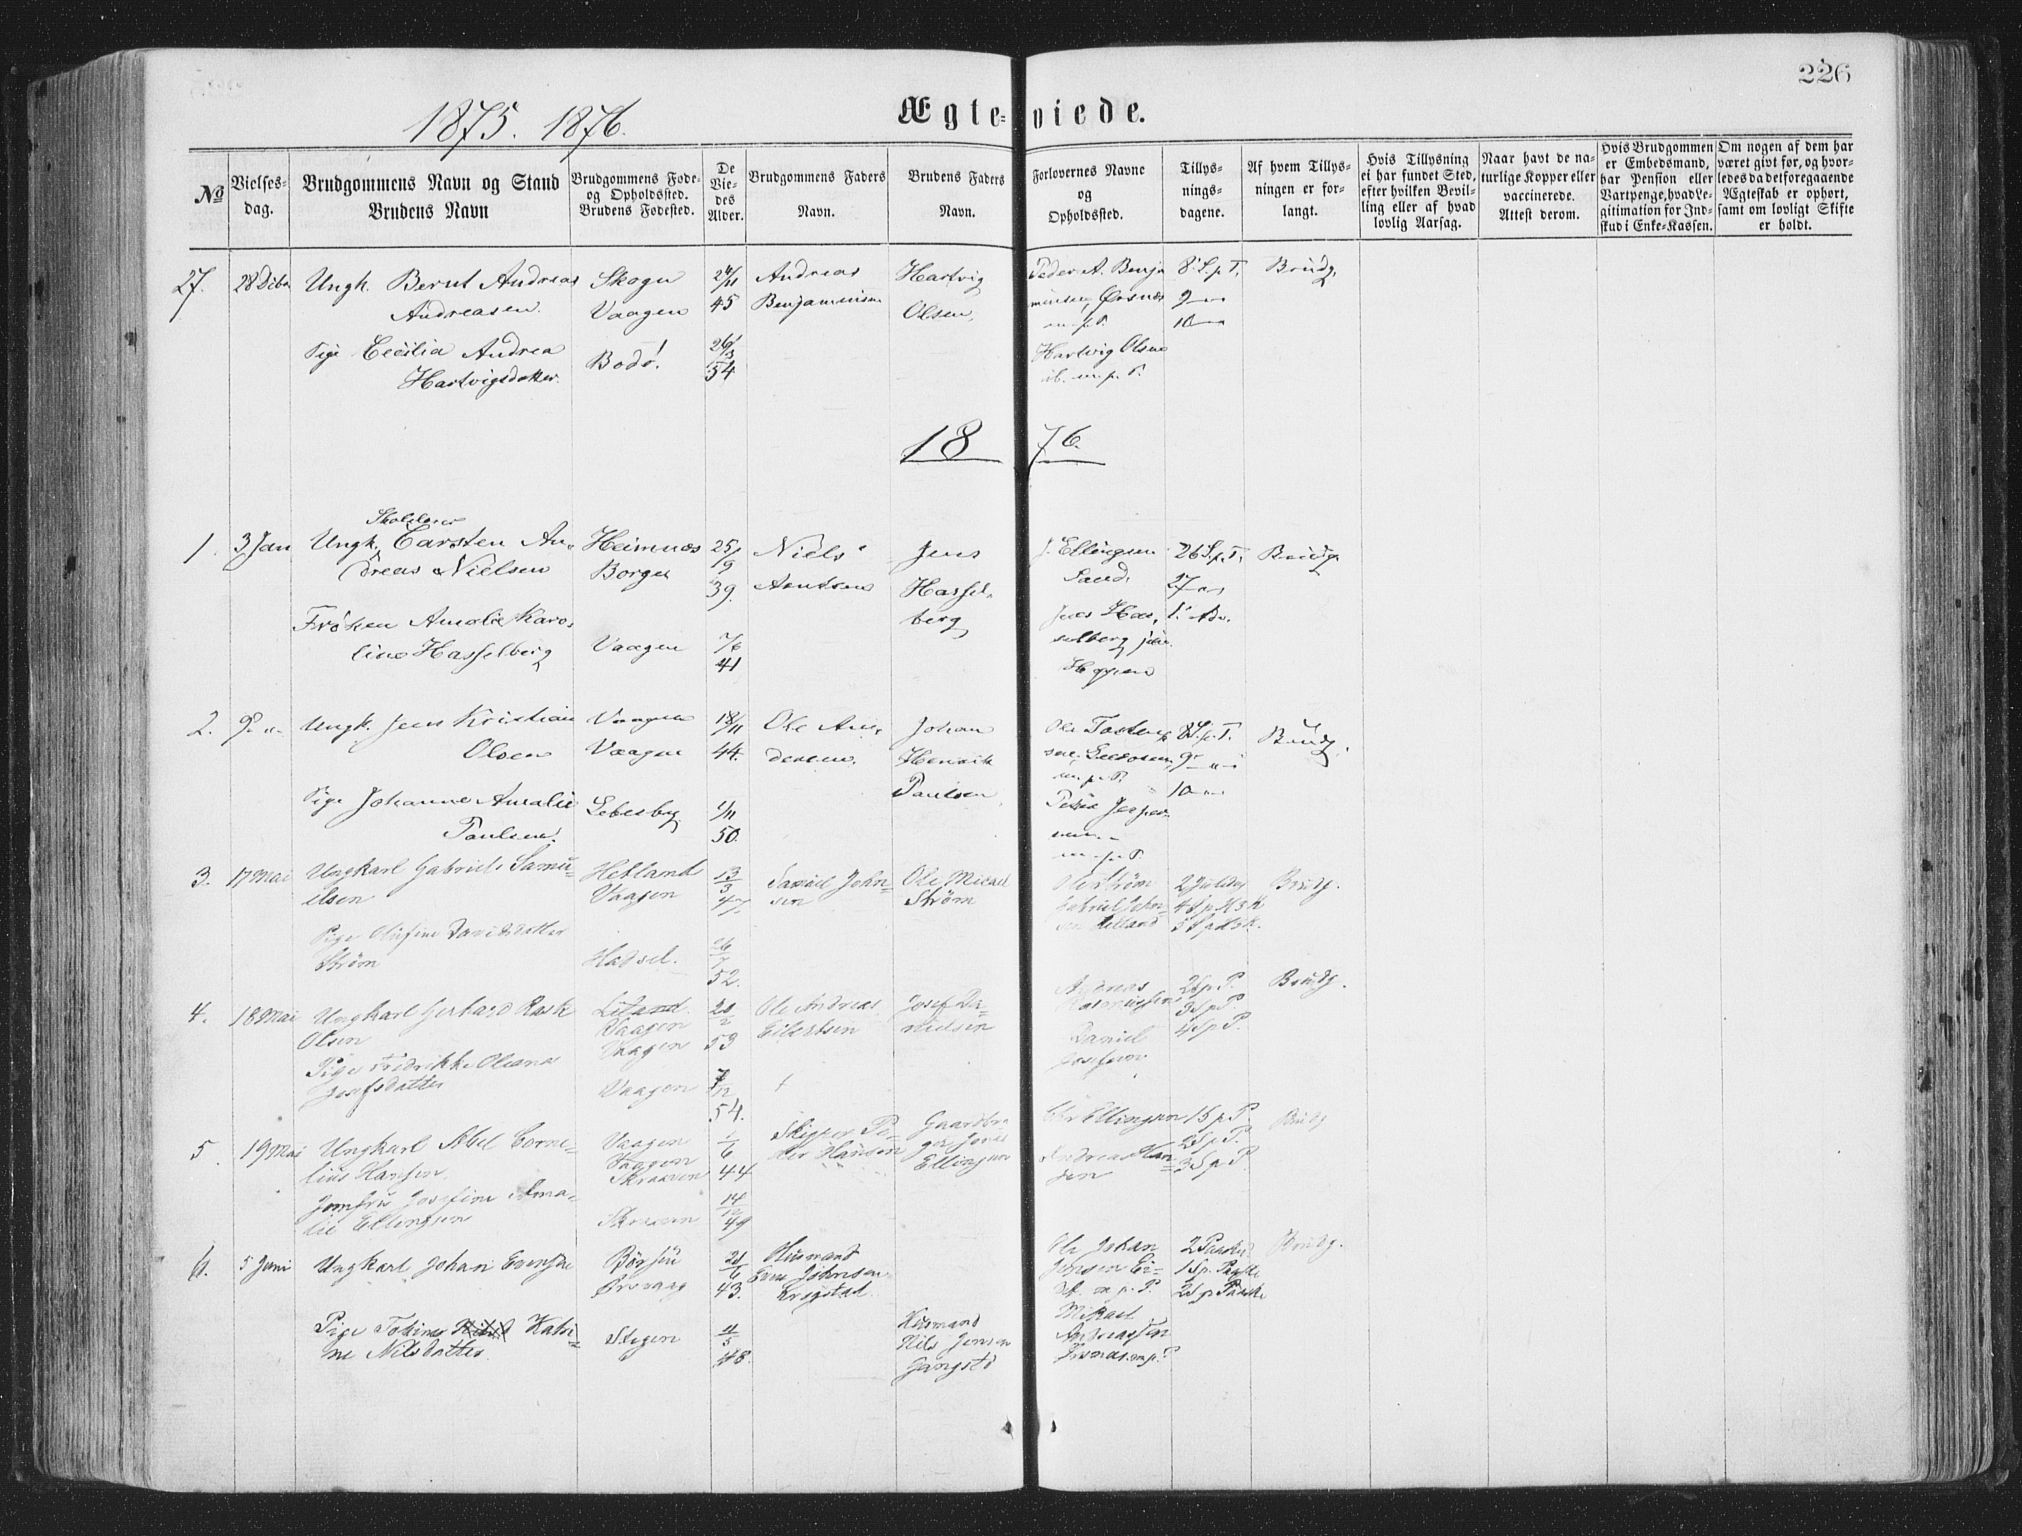 226
1875. 1876.
Ægte-viede.
No
Vielses-
dag.
Brudgommens Navn og Stand
Brudens Navn
Brudgommens Føde-
og Opholdssted.
Brudens Fødested.
De
Vie-
des
Alder.
Brudgommens Faders
Navn.
Brudens Faders
Navn.
Forlovernes Navne
og
Opholdssted.
Tillys-
nings-
dagene.
Af hvem Tillys-
ningen er for-
langt.
Hvis Tillysning
ei har fundet Sted,
efter hvilken Bevil-
ling eller af hvad
lovlig Aarsag.
Naar havt de na-
turlige Kopper eller
vaccinerede.
Attest derom.
Hvis Brudgommen
er Embedsmand,
har Pension eller
Vartpenge, hvad Le-
gitimation for Ind-
skud i Enke-Kassen.
Om nogen af dem har
været gift før, og hvor-
ledes da det foregaaende
Ægteskab er ophørt,
samt om lovligt Skifte
er holdt.
27.
28 Decbr
Ungk. Bernt Andreas
Andreasen.
Pige Cecilia Andrea
Hartvigsdatter.
Skogn
Vaagen
Bodø.
24/11
45
26/3
54
Andreas
Benjaminsen
Hartvig
Olsen.
Peder A. Benja
minsen, Ørsnæs
m. p. P.
Hartvig Olsen
ib. m. p. P.
8 S. p. T.
9 —
10 —
Brudg.
1876.
1.
3 Jan
Skolelærer
Ungk. Carsten An-
dreas Nielsen
Frøken Amalie Karo-
line Hasselberg
Heimnæs
Borge
Vaagen
25/9
39.
7/6
41
Niels
Arntsen
Jens
Hassel-
berg
J. Ellingsen
Sand.
Jens Has-
selberg jun.
26 S. p. T.
27 —
1. Ad.
Brudg.
2.
9 —
Ungk. Jens Kristian
Olsen
Pige Johanne Amalie
Paulsen.
Vaagen
Vaagen
Lebesby
18/11
44.
1/11
50.
Ole An-
dersen.
Johan
Henrik
Paulsen.
Ole Tosten-
sen,
m. p. P.
Peder Jesper-
sen
m. p. P.
8 S. p. T.
9 —
10 —
Brudg.
3.
17 Mai
Ungkarl Gabriel Samu-
elsen
Pige Olufine Davidsdatter
Strøm
Helland
Vaagen
Hadsel.
13/3
47.
26/7
52.
Samuel John-
sen
Ole Micael
Strøm
Ole Strøm
Gabriel John-
sen Helland
2 Juledag
4 S p H 3 K
5 S p H 3 K.
Brudg.
4.
18 Mai
Ungkarl Gerhard Rask
Olsen
Pige Fredrikke Oleana
Josefsdatter
Vaagen
Vaagen
Vaagen
20/2
53
7/12
54.
Ole Andreas
Eilertsen
Josef Da-
nielsen
Andreas
Rasmussen
Daniel
Josefsen
2 S p P.
3 S p P.
4 S p P.
Brudg.
5.
19 Mai
Ungkarl Abel Corne-
lius Hansen.
Jomfru Josefine Ama-
lie Ellingsen
Vaagen
Vaagen
Skraaven
Skraaven
6
44
14/12
49
Skipper Pe-
der Hansen
Gaardbru
ger Jens
Ellingsen
Chr Ellingsen
Andreas Han-
sen
1 S p P.
2 S p P.
3 S p P.
Brudg
6.
5 Juni
Ungkarl Johan Evensen
Pige Tokine Katri-
ne Nilsdatter.
Ørsvaag
Stegen
21/6
43.
11/5
48.
Husmand
Even Johnsen
Husmand
Nils Jensen
Ole Johan
Jensen Ei-
de m. p. P.
Mikael
Andreassen
Ørsnæs m. p. P
2 Paaskd.
1 S p. Paaske
2 S p. Paaske
Brudg.